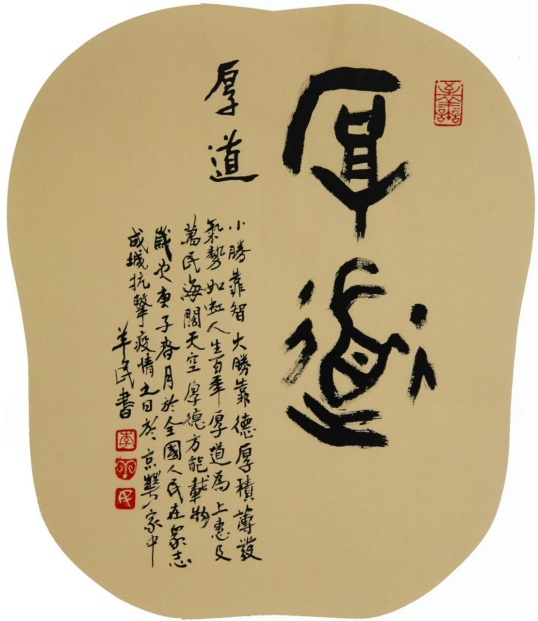 厚道
厚道
小勝靠智大勝靠德厚積薄發
氣勢如虹人生百年厚道為上惠及
萬民海闊天空厚德方能載物
歲次庚子春月於全國人民在眾志
成城抗擊疫情之日於京家中
羊民書
李
羊
民